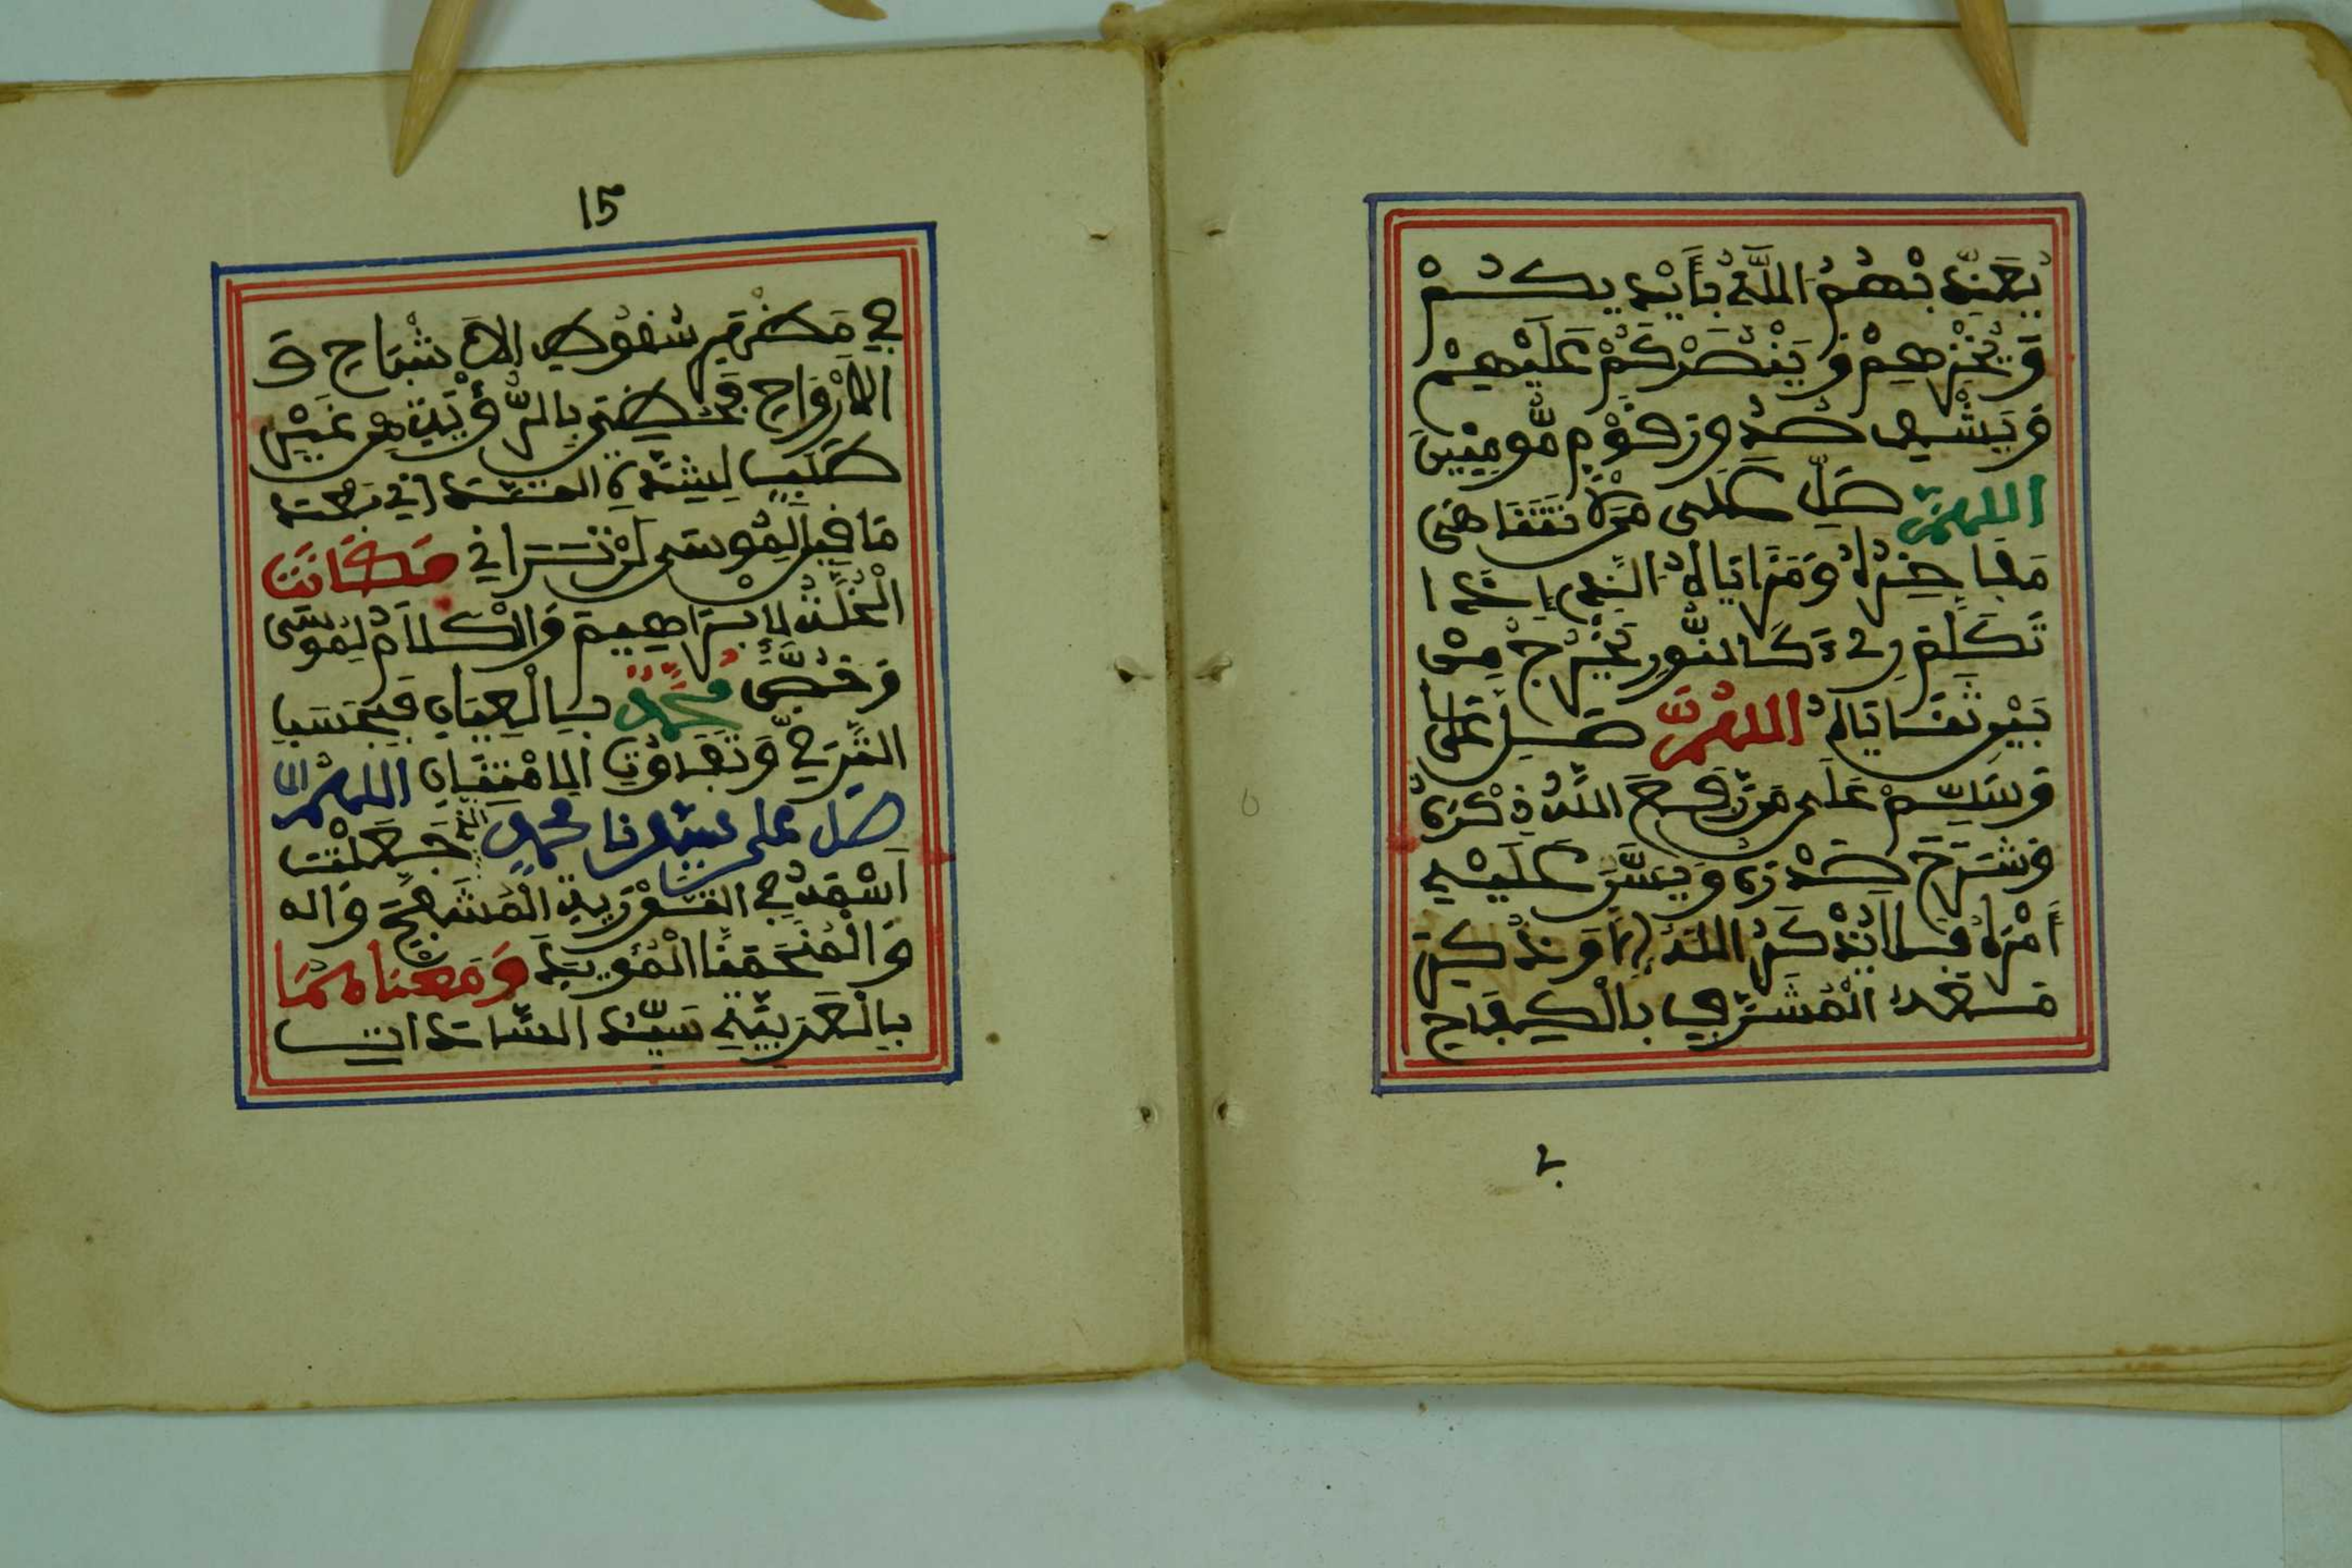 يُعَذِّبْهُمُ اللَّهُ بِأَيْدِيكُمْ
وَيُخْزِهِمْ وَيَنْصُرْكُمْ عَلَيْهِمْ
وَيَشْفِ صُدُورَ قَوْمٍ مُّومِنِينَ
اللهم صَلِّ عَلَى مَن
مَفَاخِرُهُ وَمَزَايَاهُ الَّذِي إِذَا
تَكَلَّمَ رِيءَ كَالنُّورِ يَخْرُجُ مِنْ
بَيْنِ ثَنَايَاهُ اللهم صَلِّ عَلَى
وَسَلِّمْ عَلَى مَن رَفَعَ اللَّهُ ذِكْرَهُ
وَشَرَحَ صَدْرَهُ وَيَسَّرَ عَلَيْهِ
أَمْرَهُ فَلَا يُذْكَرُ اللهُ إِلَّا وَذُكِرَ
مَعَهُ الْمُشَرَّفِ بِالْكِفَاحِ
15
فِي شُفُوفِ الأَشْبَاحِ وَ
الأَرْوَاحِ بِالرُّؤْيَةِ مِن غَيْرِ
طَلَبٍ لِشِدَّةِ بَعْدَ
مَا قِيلَ لِمُوسَى لَن تَرَانِي فَكَانَتِ
الْخُلَّةُ لِإِبْرَاهِيمَ وَالْكَلَامُ لِمُوسَى
وَخُصَّ مُحَمَّدٌ بِالْعِيَانِ فَبِحَسَبِ
التَّرَقِّي وَتَفَاوُتِ اللهم
صل على سيدنا محمد الذي جَعَلْتَ
اسْمَهُ فِي التَّوْرَيةِ الْمُشَفَّحَ وَاله
وَالْمُنْحَمَنَّا الْمُؤَيَّدَ وَمَعْنَاهُمَا
بِالْعَرَبِيَّةِ سَيِّدُ السَّادَاتِ